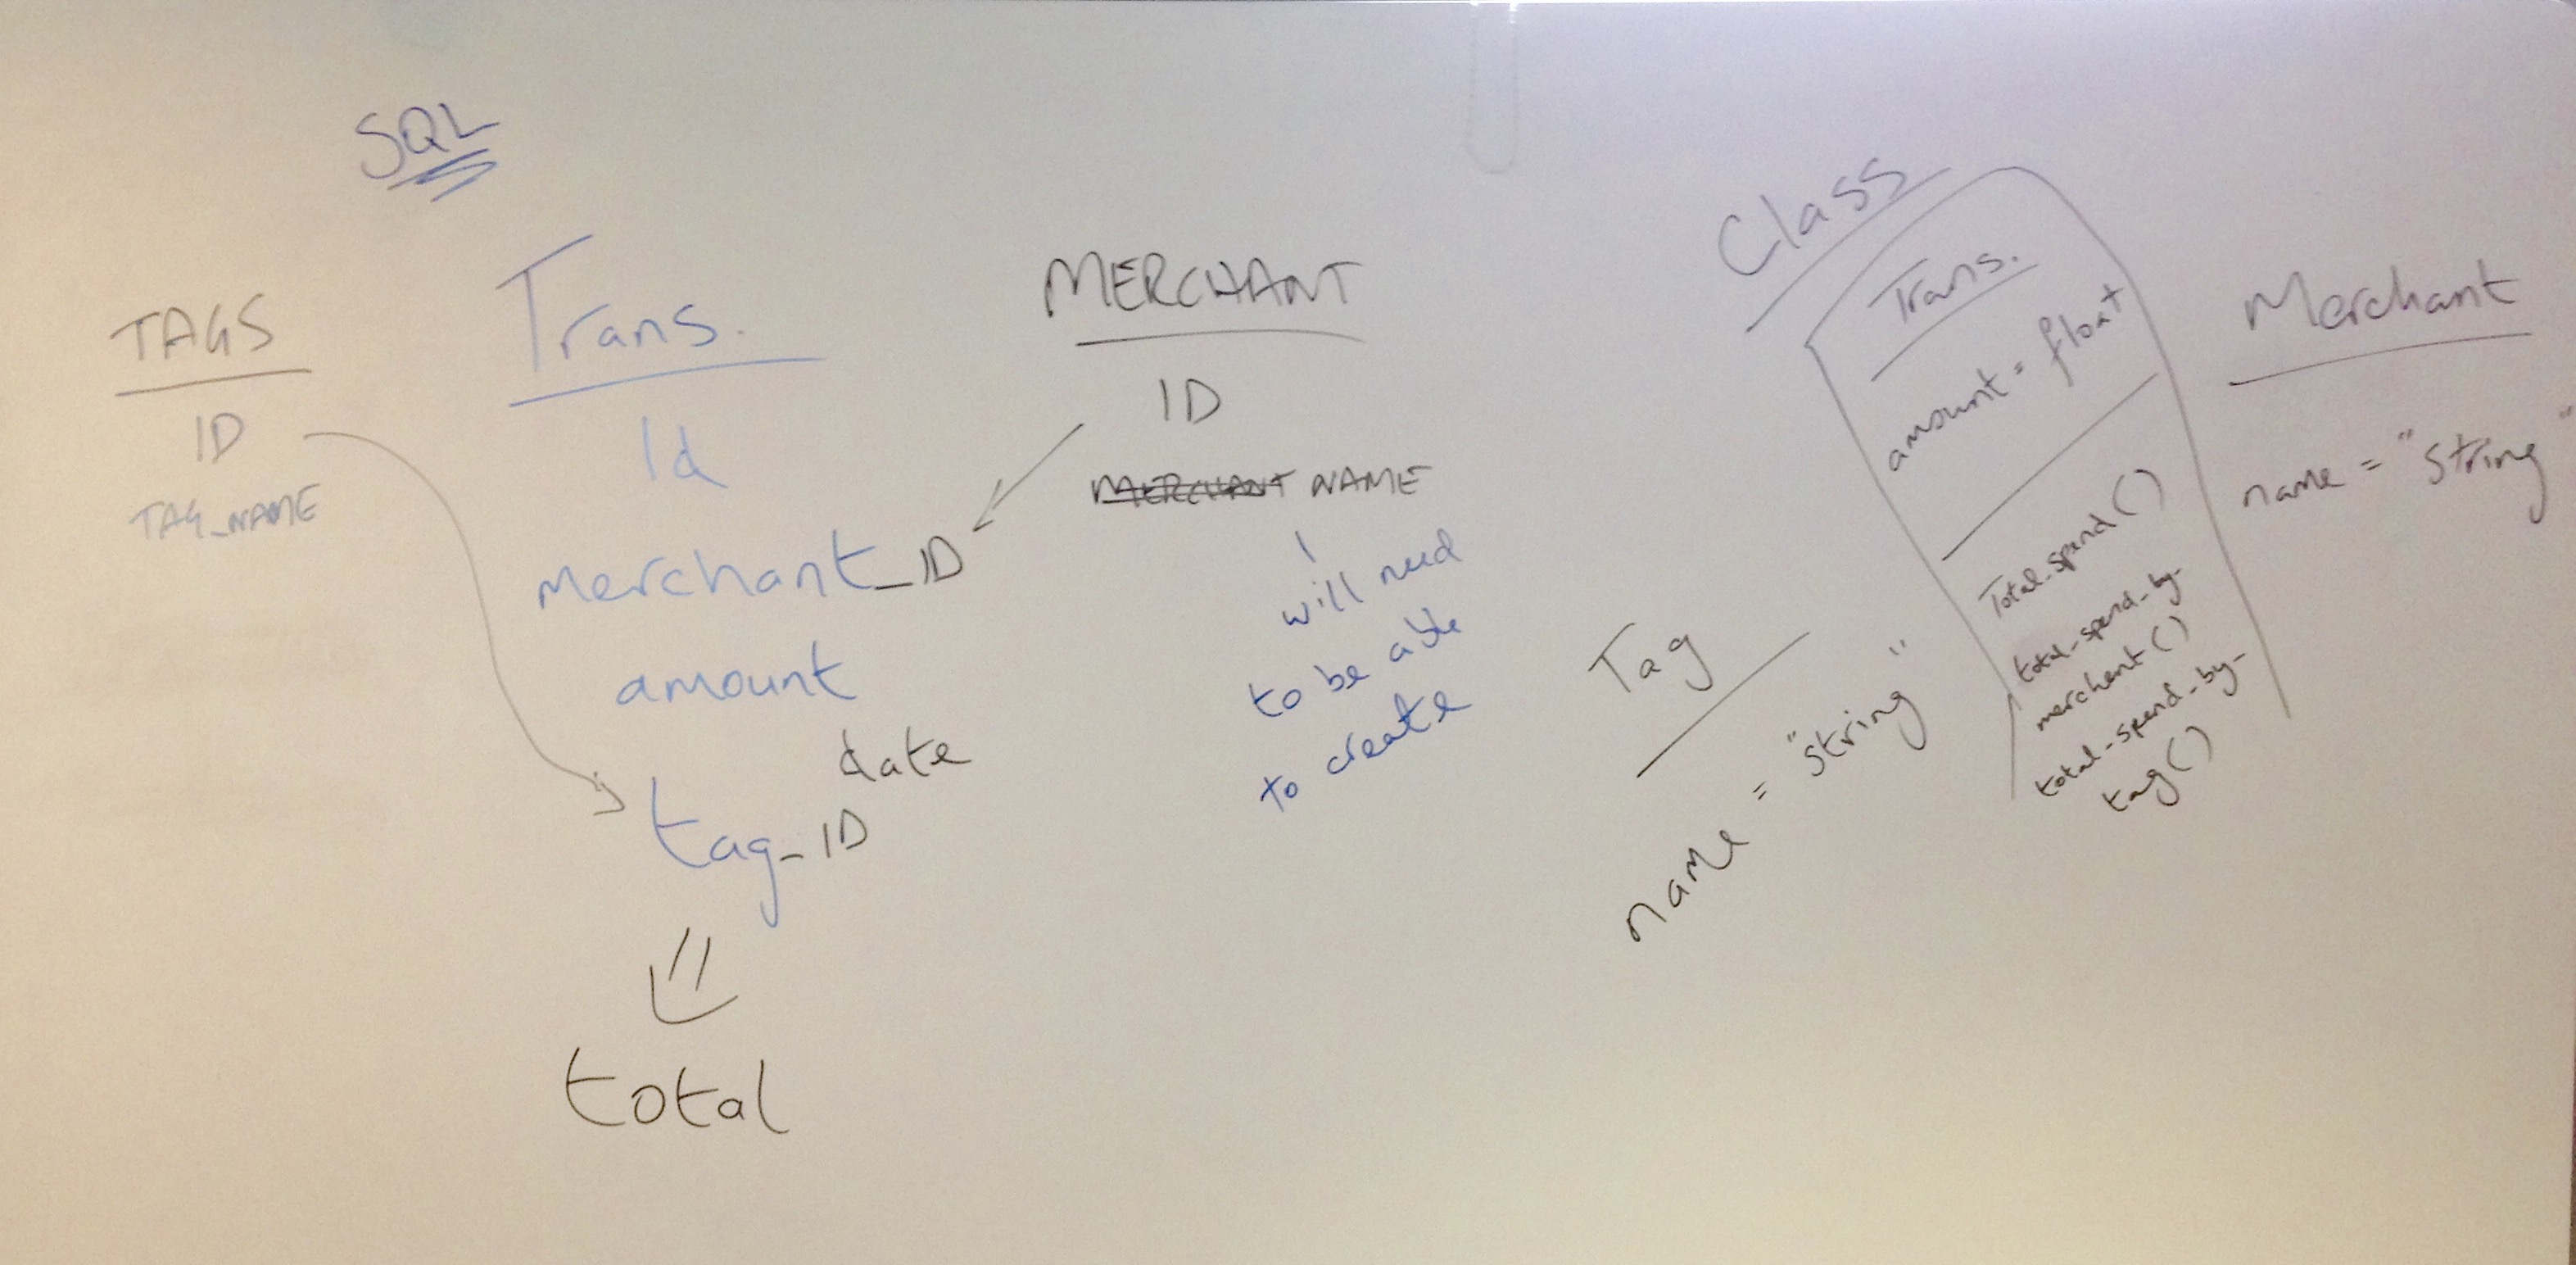 SQL
TAGS
ID
TAG_NAME
Trans.
Id
merchant_ID
amount
date
tag_ID
total
MERCHANT
ID
MERCHANT NAME
will need
to be able
to create
Class
Tag
name = "string"
Trans.
amount = float
Total_spend()
total_spend_by_
merchant()
total_spend_by_
tag()
Merchant
name = "string"